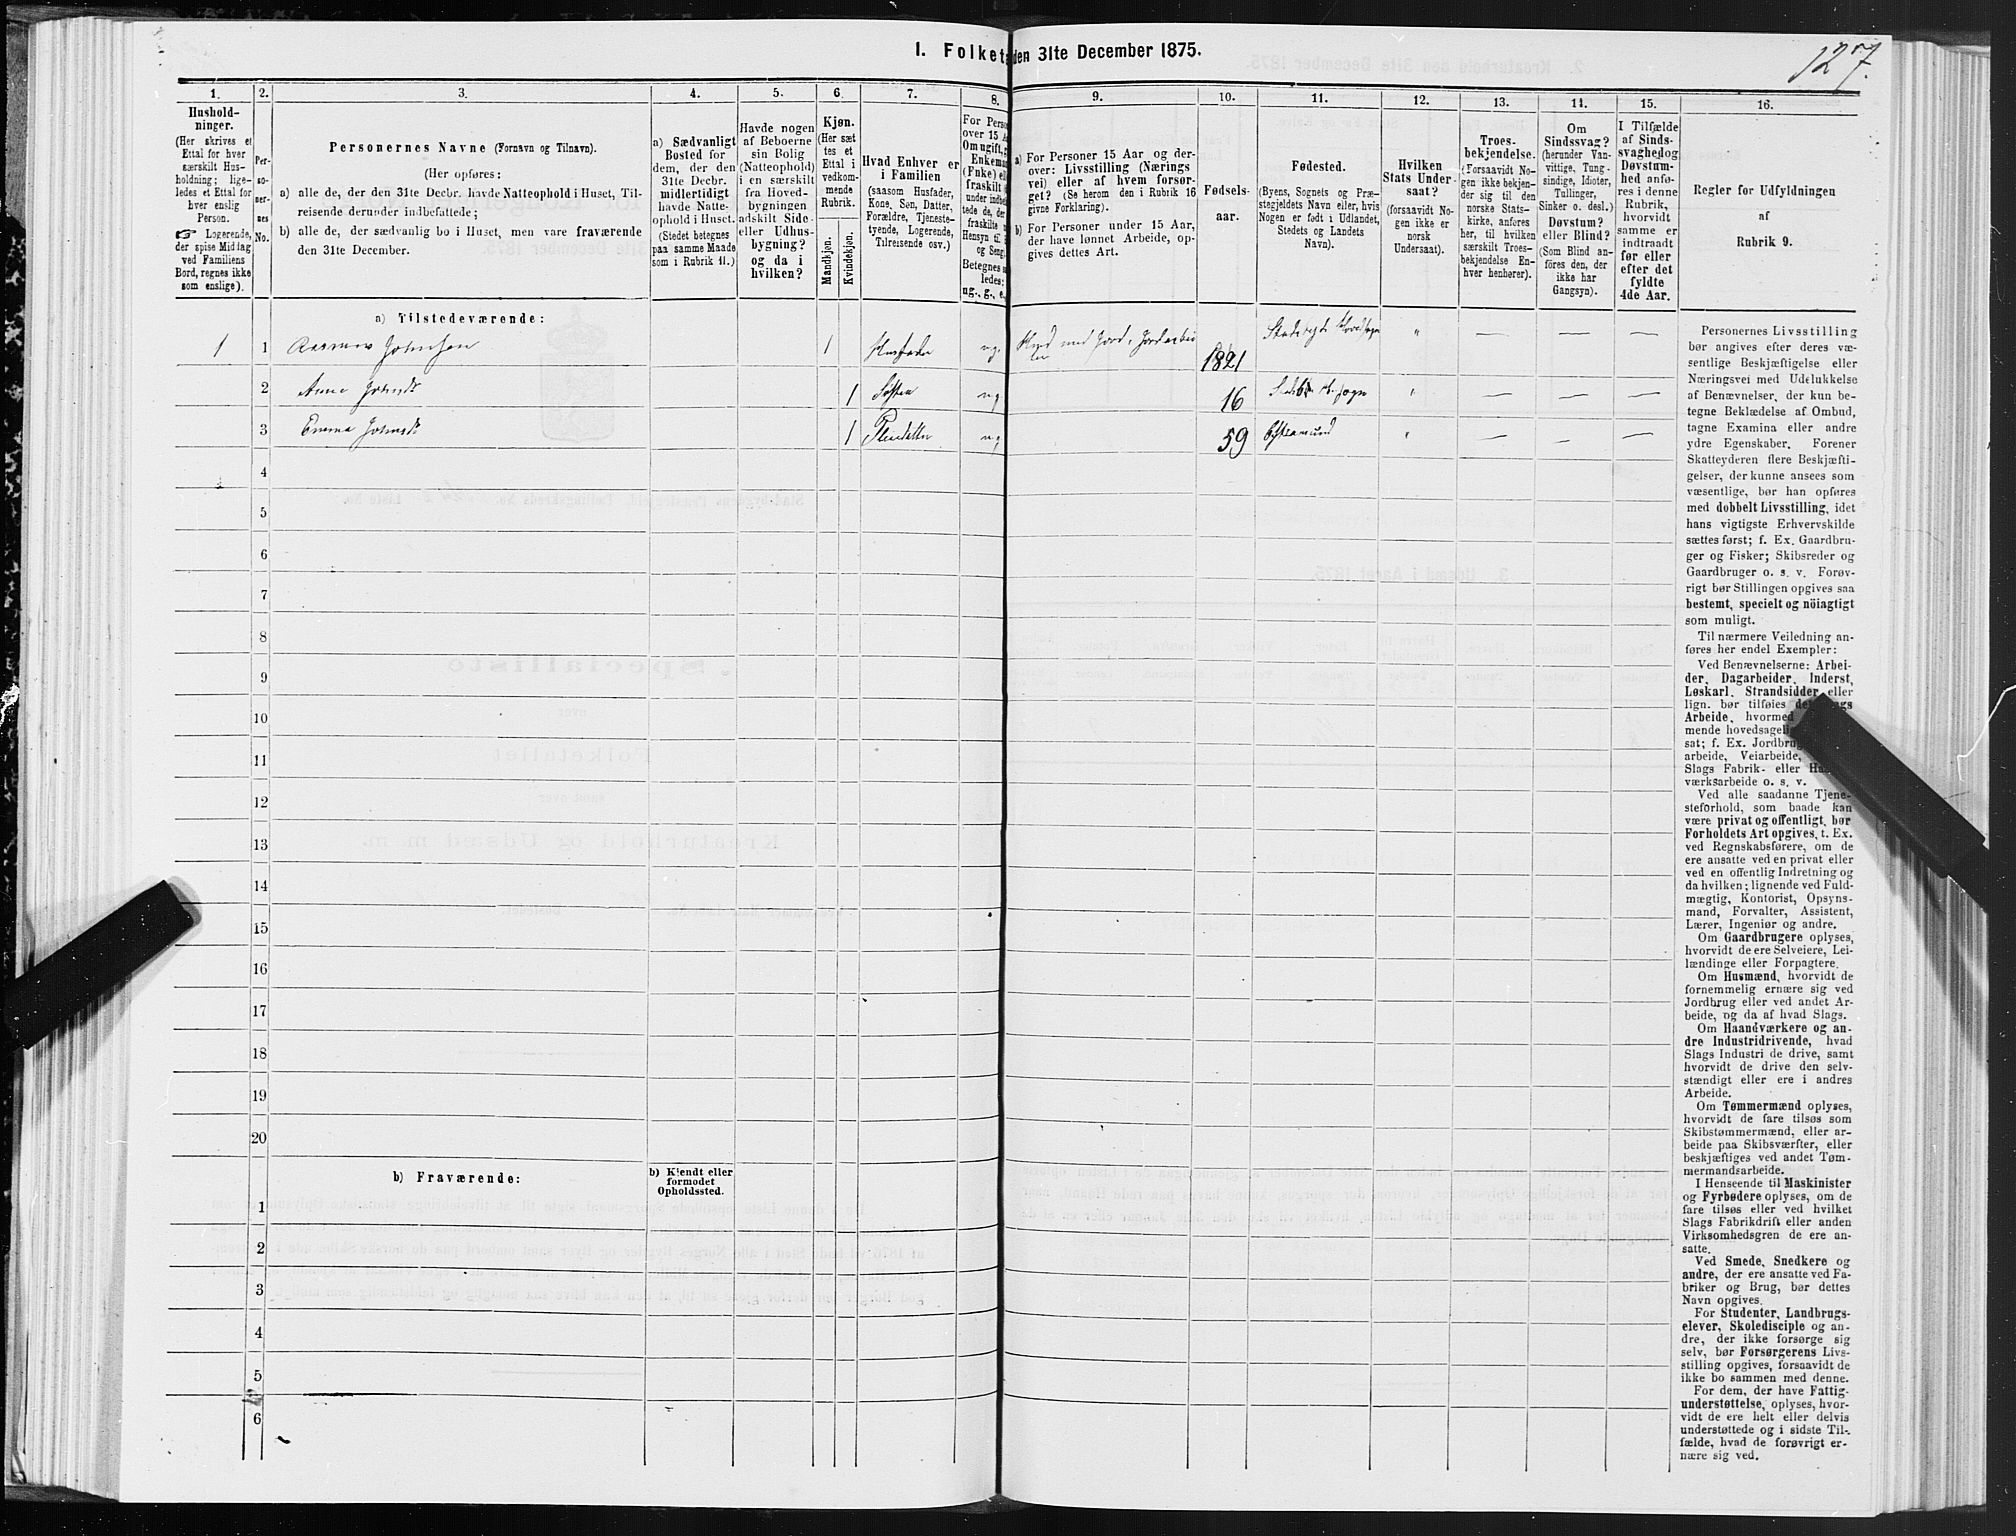 I. Folketa den 31te December 1875.
127.
1.
Hushold-
ninger.
(Her skrives et
Ettal for hver
særskilt Hus-
holdning; lige-
ledes et Ettal for
hver enslig
Person.
☞ Logerende,
der spise Middag
ved Familiens
Bord, regnes ikke
som enslige).
2.
Per-
so-
ner-
nes
No.
3.
Personernes Navne (Fornavn og Tilnavn).
(Her opføres:
a) alle de, der den 31te Decbr. havde Natteophold i Huset, Til-
reisende derunder indbefattede;
b) alle de, der sædvanlig bo i Huset, men vare fraværende
den 31te December.
4.
a) Sædvanligt
Bosted for
dem, der den
31te Decbr.
midlertidigt
havde Natte-
ophold i Huset.
(Stedet betegnes
paa samme Maade
som i Rubrik 11.)
5.
Havde nogen
af Beboerne
sin Bolig
(Natteophold)
i en særskilt
fra Hoved-
bygningen
adskilt Side-
eller Udhus-
bygning?
og da i
hvilken?
6.
Kjøn.
(Her sæt
tes et
Ettal i
vedkom-
mende
Rubrik.
Mandkjøn.
Kvindekjøn.
7.
Hvad Enhver er
i Familien
(saasom Husfader,
Kone, Søn, Datter,
Forældre, Tjeneste-
tyende, Logerende,
Tilreisende osv.)
8.
For Perso
over 15 A
Om ugift, g
Enkeman
(Enke) el
fraskilt
under indbe
tede de, de
fraskilte
Hensyn til
og Seng
Betegnes s
ledes:
ug., g., e.
9.
a) For Personer 15 Aar og der-
over: Livsstilling (Nærings
vei) eller af hvem forsør-
get? (Se herom den i Rubrik 16
givne Forklaring).
b) For Personer under 15 Aar,
der have lønnet Arbeide, op-
gives dettes Art.
10.
Fødsels-
aar.
11.
Fødested.
(Byens, Sognets og Præ-
stegjeldets Navn eller, hvis
Nogen er født i Udlandet,
Stedets og Landets
Navn).
12.
Hvilken
Stats Under-
saat?
(forsaavidt No-
gen ikke er
norsk
Undersaat).
13.
Troes-
bekjendelse.
(Forsaavidt No-
gen ikke bekjen-
der sig til den
norske Stats-
kirke, anføres
her, til hvilken
særskilt Troes-
bekjendelse En-
hver henhører).
14.
Om
Sindssvag?
(herunder Van-
vittige, Tung-
sindige, Idioter,
Tullinger,
Sinker o. desl.)
Døvstum?
eller Blind?
(Som Blind an-
føres den, der
ikke har
Gangsyn).
15.
I Tilfælde
af Sinds-
svaghed og
Døvstum-
hed anfø-
res i denne
Rubrik,
hvorvidt
samme er
indtraadt
før eller
efter det
fyldte
4de Aar.
16.
Regler for Udfyldningen
af
Rubrik 9.
a) Tilstedeværende:
1 1 Johnsen 1 Husfader ug. med Jord, 1821 " — — —
2 Anne Johnsdt 1 Søster ug. 16 " — — —
3 Emma Johnsdt 1 Pleiedatter ug. 59 " — — —
4
5
6
7
8
9
10
11
12
13
14
15
16
17
18
19
20
b) Fraværende:
b) Kjendt eller
formodet
Opholdssted.
1
2
3
4
5
6
Personernes Livsstilling
bør angives efter deres væ-
sentlige Beskjæftigelse eller
Næringsvei med Udelukkelse
af Benævnelser, der kun be-
tegne Beklædelse af Ombud,
tagne Examina eller andre
ydre Egenskaber. Forener
Skatteyderen flere Beskjæfti-
gelser, der kunne ansees som
væsentlige, bør han opføres
med dobbelt Livsstilling, idet
hans vigtigste Erhvervskilde
sættes først; f. Ex. Gaardbru-
ger og Fisker; Skibsreder og
Gaardbruger o. s. v. Forøv-
rigt bør Stillingen opgives saa
bestemt, specielt og nöiagtigt
som muligt.
Til nærmere Veiledning an-
føres her endel Exempler:
Ved Benævnelserne: Arbei-
der, Dagarbeider, Inderst,
Løskarl, Strandsidder eller
lign. bør tilføies
Arbeide, hvormed
mende hovedsagel
sat; f. Ex. Jordbrug
arbeide, Veiarbeide,
Slags Fabrik- eller
værksarbeide o. s. v.
Ved alle saadanne Tjene-
steforhold, som baade kan
være privat og offentligt, bør
Forholdets Art opgives, t. Ex.
ved Regnskabsførere, om de
ere ansatte ved en privat eller
ved en offentlig Indretning og
da hvilken; lignende ved Fuld-
mægtig, Kontorist, Opsyns-
mand, Forvalter, Assistent,
Lærer, Ingeniør og andre.
Om Gaardbrugere oplyses,
hvorvidt de ere Selveiere, Lei-
lændinge eller Forpagtere.
Om Husmænd, hvorvidt de
fornemmelig ernære sig ved
Jordbrug eller ved andet Ar-
beide, og da af hvad Slags.
Om Haandværkere og an-
dre Industridrivende, hvad
Slags Industri de drive, samt
hvorvidt de drive den selv-
stændigt eller ere i andres
Arbeide.
Om Tømmermænd oplyses,
hvorvidt de fare tilsøs som
Skibstømmermænd, eller ar-
beide paa Skibsværfter, eller
beskjæftiges ved andet Tøm-
mermandsarbeide.
I Henseende til Maskinister
og Fyrbødere oplyses, om de
fare tilsøs eller ved hvilket
Slags Fabrikdrift eller anden
Virksomhedsgren de ere an-
satte.
Ved Smede, Snedkere og
andre, der ere ansatte ved Fa-
briker og Brug, bør dettes
Navn opgives.
For Studenter, Landbrugs-
elever, Skoledisciple og an-
dre, der ikke forsørge sig
selv, bør Forsørgerens Livs-
stilling opgives, forsaavidt de
ikke bo sammen med denne.
For dem, der have Fattig-
understøttelse, oplyses, hvor-
vidt de ere helt eller delvis
understøttede og i sidste Til-
fælde, hvad de forøvrigt er-
nære sig ved.